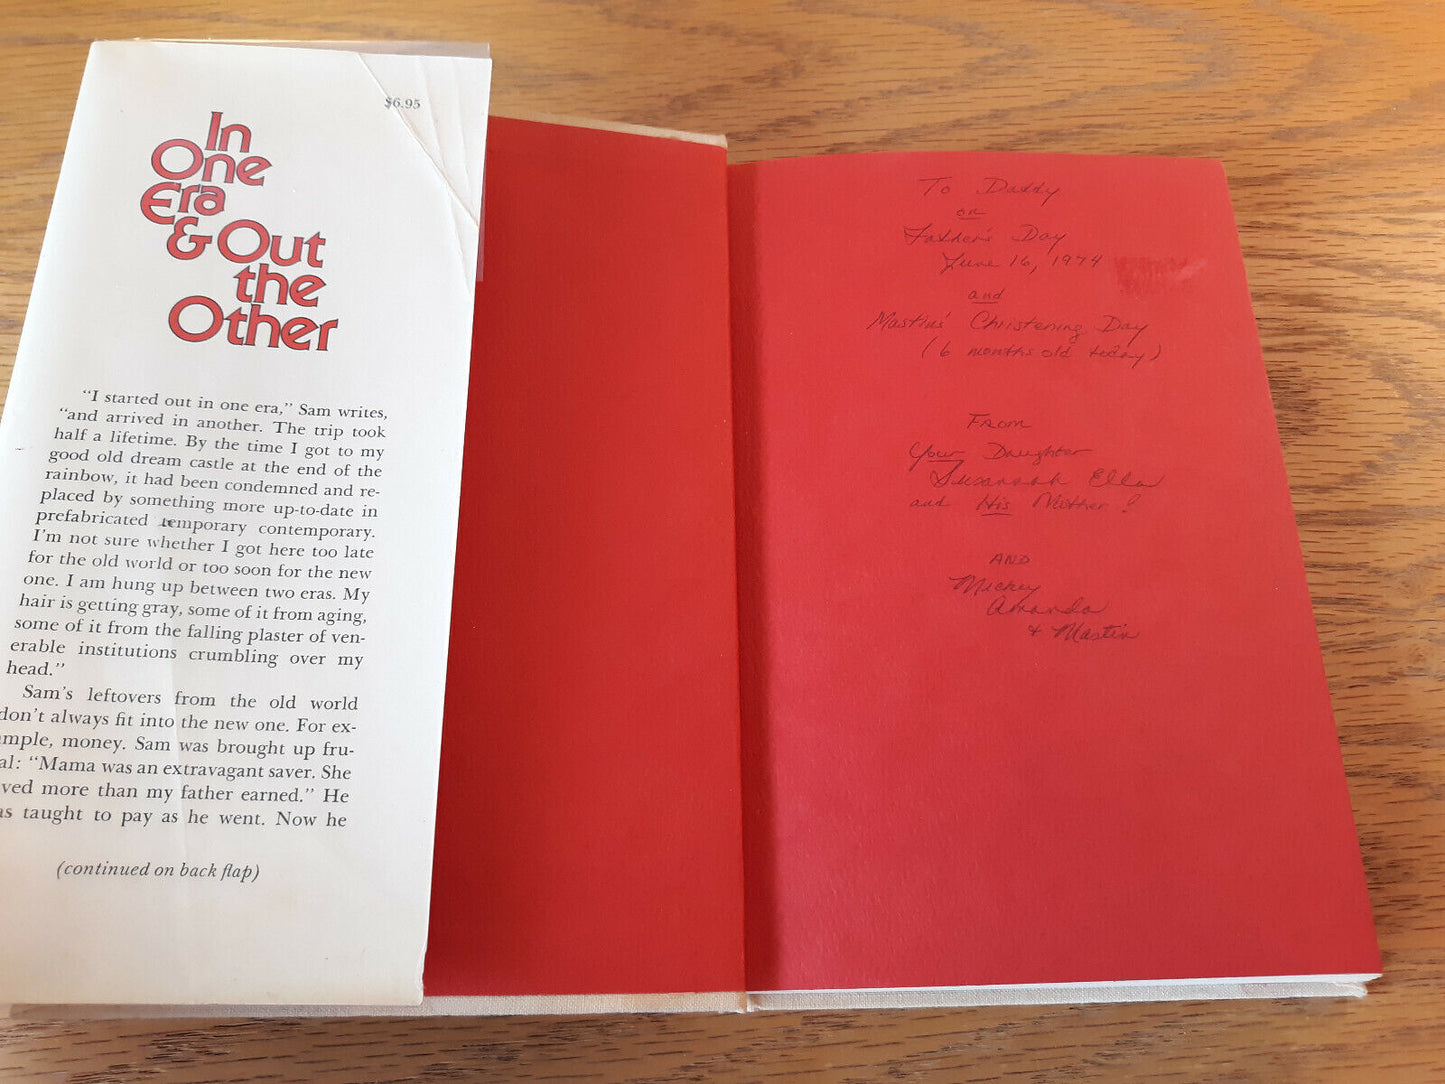 $6.95
In
One
Era
& Out
the
Other
"I started out in one era," Sam writes,
"and arrived in another. The trip took
half a lifetime. By the time I got to my
good old dream castle at the end of the
rainbow, it had been condemned and re-
placed by something more up-to-date in
prefabricated temporary contemporary.
I'm not sure whether I got here too late
for the old world or too soon for the new
one. I am hung up between two eras. My
hair is getting gray, some of it from aging,
some of it from the falling plaster of ven-
erable institutions crumbling over my
head."
Sam's leftovers from the old world
don't always fit into the new one. For ex-
mple, money. Sam was brought up fru-
al: "Mama was an extravagant saver. She
ved more than my father earned." He
as taught to pay as he went. Now he
(continued on back flap)
To Daddy
on
Father's Day
June 16, 1974
and
Mastin's Christening Day
(6 months old today)
From
Your Daughter
Susannah Ella
and His Mother!
AND
Mickey
Amanda
+ Mastin